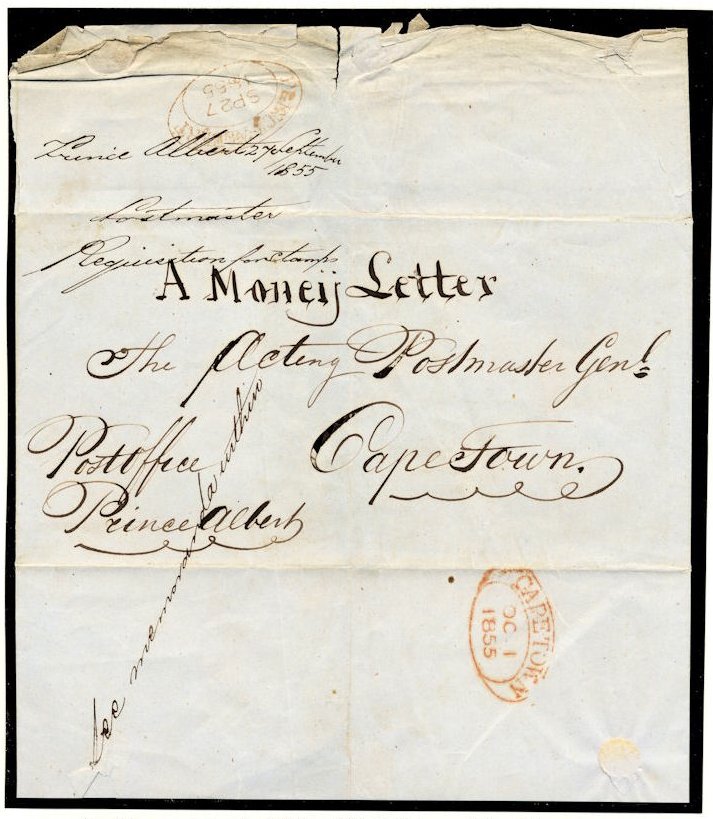 SP 27
1855
Prince Albert 27 September
1855
Postmaster
Requisition for stamps
A Money Letter
The Acting Postmaster Genl
Post Office
Cape Town.
Prince Albert
See memoranda within
CAPE TOWN
OC 1
1855